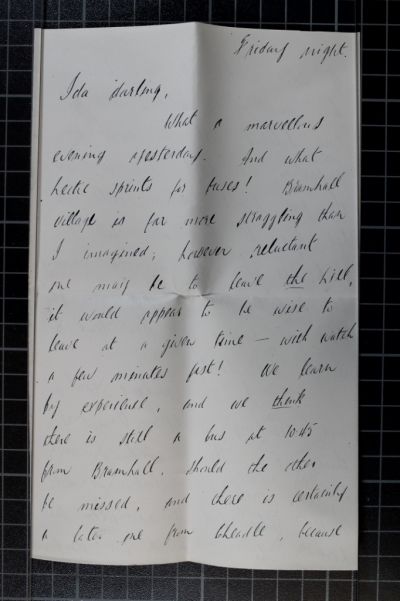 Friday night.
Ida darling,
What a marvellous
evening yesterday. And what
hectic sprints for buses! Bramhall
village is far more straggling than
I imagined; however reluctant
one may be to leave the hill,
it would appear to be wise to
leave at a given time — with watch
a few minutes fast! We learn
by experience, and we think
there is still a bus at 10.45
from Bramhall, should the other
be missed, and there is certainly
a later one from Cheadle, because